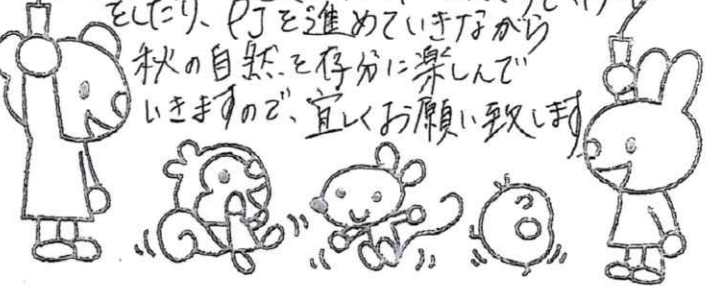 をしたり、PJを進めていきながら
秋の自然を存分に楽しんで
いきますので、宜しくお願い致します